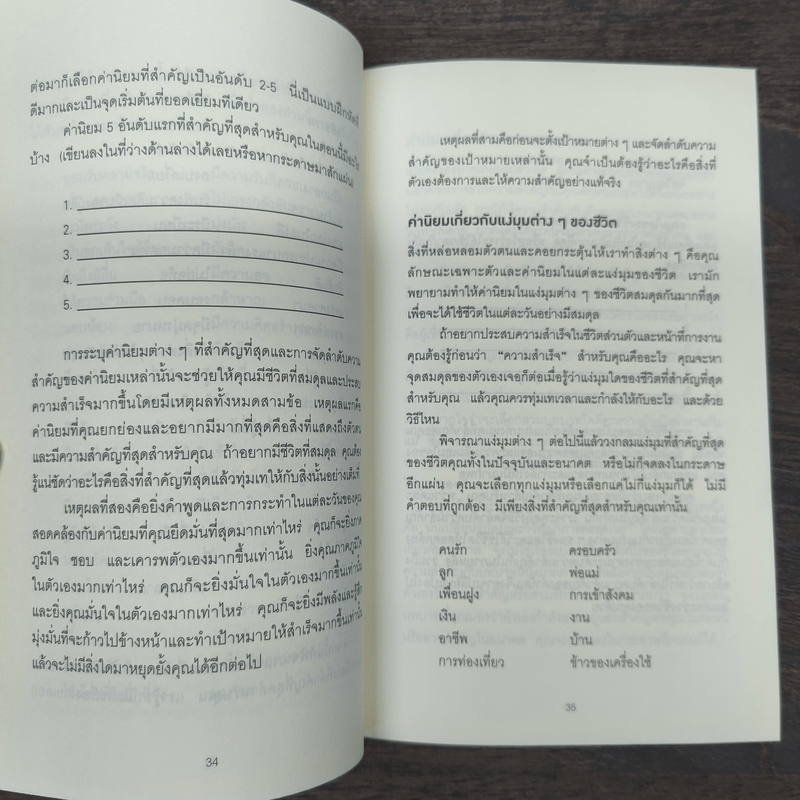 ต่อมาก็เลือกค่านิยมที่สำคัญเป็นอันดับ 2-5 นี่เป็นแบบฝึกหัดที่
ดีมากและเป็นจุดเริ่มต้นที่ยอดเยี่ยมทีเดียว
ค่านิยม 5 อันดับแรกที่สำคัญที่สุดสำหรับคุณในตอนนี้มีอะไร
บ้าง (เขียนลงในที่ว่างด้านล่างได้เลยหรือหากระดาษมาสักแผ่น)
1.
2.
3.
4.
5.
การระบุค่านิยมต่าง ๆ ที่สำคัญที่สุดและการจัดลำดับความ
สำคัญของค่านิยมเหล่านั้นจะช่วยให้คุณมีชีวิตที่สมดุลและประสบ
ความสำเร็จมากขึ้นโดยมีเหตุผลทั้งหมดสามข้อ เหตุผลแรกคือ
ค่านิยมที่คุณยกย่องและอยากมีมากที่สุดคือสิ่งที่แสดงถึงตัวตน
และมีความสำคัญที่สุดสำหรับคุณ ถ้าอยากมีชีวิตที่สมดุล คุณต้อง
รู้แน่ชัดว่าอะไรคือสิ่งที่สำคัญที่สุดแล้วทุ่มเทให้กับสิ่งนั้นอย่างเต็มที่
เหตุผลที่สองคือยิ่งคำพูดและการกระทำในแต่ละวันของคุณ
สอดคล้องกับค่านิยมที่คุณยึดมั่นที่สุดมากเท่าไหร่ คุณก็จะยิ่งภาค
ภูมิใจ ชอบ และเคารพตัวเองมากขึ้นเท่านั้น ยิ่งคุณภาคภูมิใจ
ในตัวเองมากเท่าไหร่ คุณก็จะยิ่งมั่นใจในตัวเองมากขึ้นเท่านั้น
และยิ่งคุณมั่นใจในตัวเองมากเท่าไหร่ คุณก็จะยิ่งมีพลังและรู้สึก
มุ่งมั่นที่จะก้าวไปข้างหน้าและทำเป้าหมายให้สำเร็จมากขึ้นเท่านั้น
แล้วจะไม่มีสิ่งใดมาหยุดยั้งคุณได้อีกต่อไป
34
เหตุผลที่สามคือก่อนจะตั้งเป้าหมายต่าง ๆ และจัดลำดับความ
สำคัญของเป้าหมายเหล่านั้น คุณจำเป็นต้องรู้ว่าอะไรคือสิ่งที่
ตัวเองต้องการและให้ความสำคัญอย่างแท้จริง
ค่านิยมเกี่ยวกับแง่มุมต่าง ๆ ของชีวิต
สิ่งที่หล่อหลอมตัวตนและคอยกระตุ้นให้เราทำสิ่งต่าง ๆ คือคุณ
ลักษณะเฉพาะตัวและค่านิยมในแต่ละแง่มุมของชีวิต เรามัก
พยายามทำให้ค่านิยมในแง่มุมต่าง ๆ ของชีวิตสมดุลกันมากที่สุด
เพื่อจะได้ใช้ชีวิตในแต่ละวันอย่างมีสมดุล
ถ้าอยากประสบความสำเร็จในชีวิตส่วนตัวและหน้าที่การงาน
คุณต้องรู้ก่อนว่า “ความสำเร็จ” สำหรับคุณคืออะไร คุณจะหา
จุดสมดุลของตัวเองเจอก็ต่อเมื่อรู้ว่าแง่มุมใดของชีวิตที่สำคัญที่สุด
สำหรับคุณ แล้วคุณควรทุ่มเทเวลาและกำลังให้กับอะไร และด้วย
วิธีไหน
พิจารณาแง่มุมต่าง ๆ ต่อไปนี้แล้ววงกลมแง่มุมที่สำคัญที่สุด
ของชีวิตคุณทั้งในปัจจุบันและอนาคต หรือไม่ก็จดลงในกระดาษ
อีกแผ่น คุณจะเลือกทุกแง่มุมหรือเลือกแค่ไม่กี่แง่มุมก็ได้ ไม่มี
คำตอบที่ถูกต้อง มีเพียงสิ่งที่สำคัญที่สุดสำหรับคุณเท่านั้น
คนรัก ครอบครัว
ลูก พ่อแม่
เพื่อนฝูง การเข้าสังคม
เงิน งาน
อาชีพ บ้าน
การท่องเที่ยว ข้าวของเครื่องใช้
35